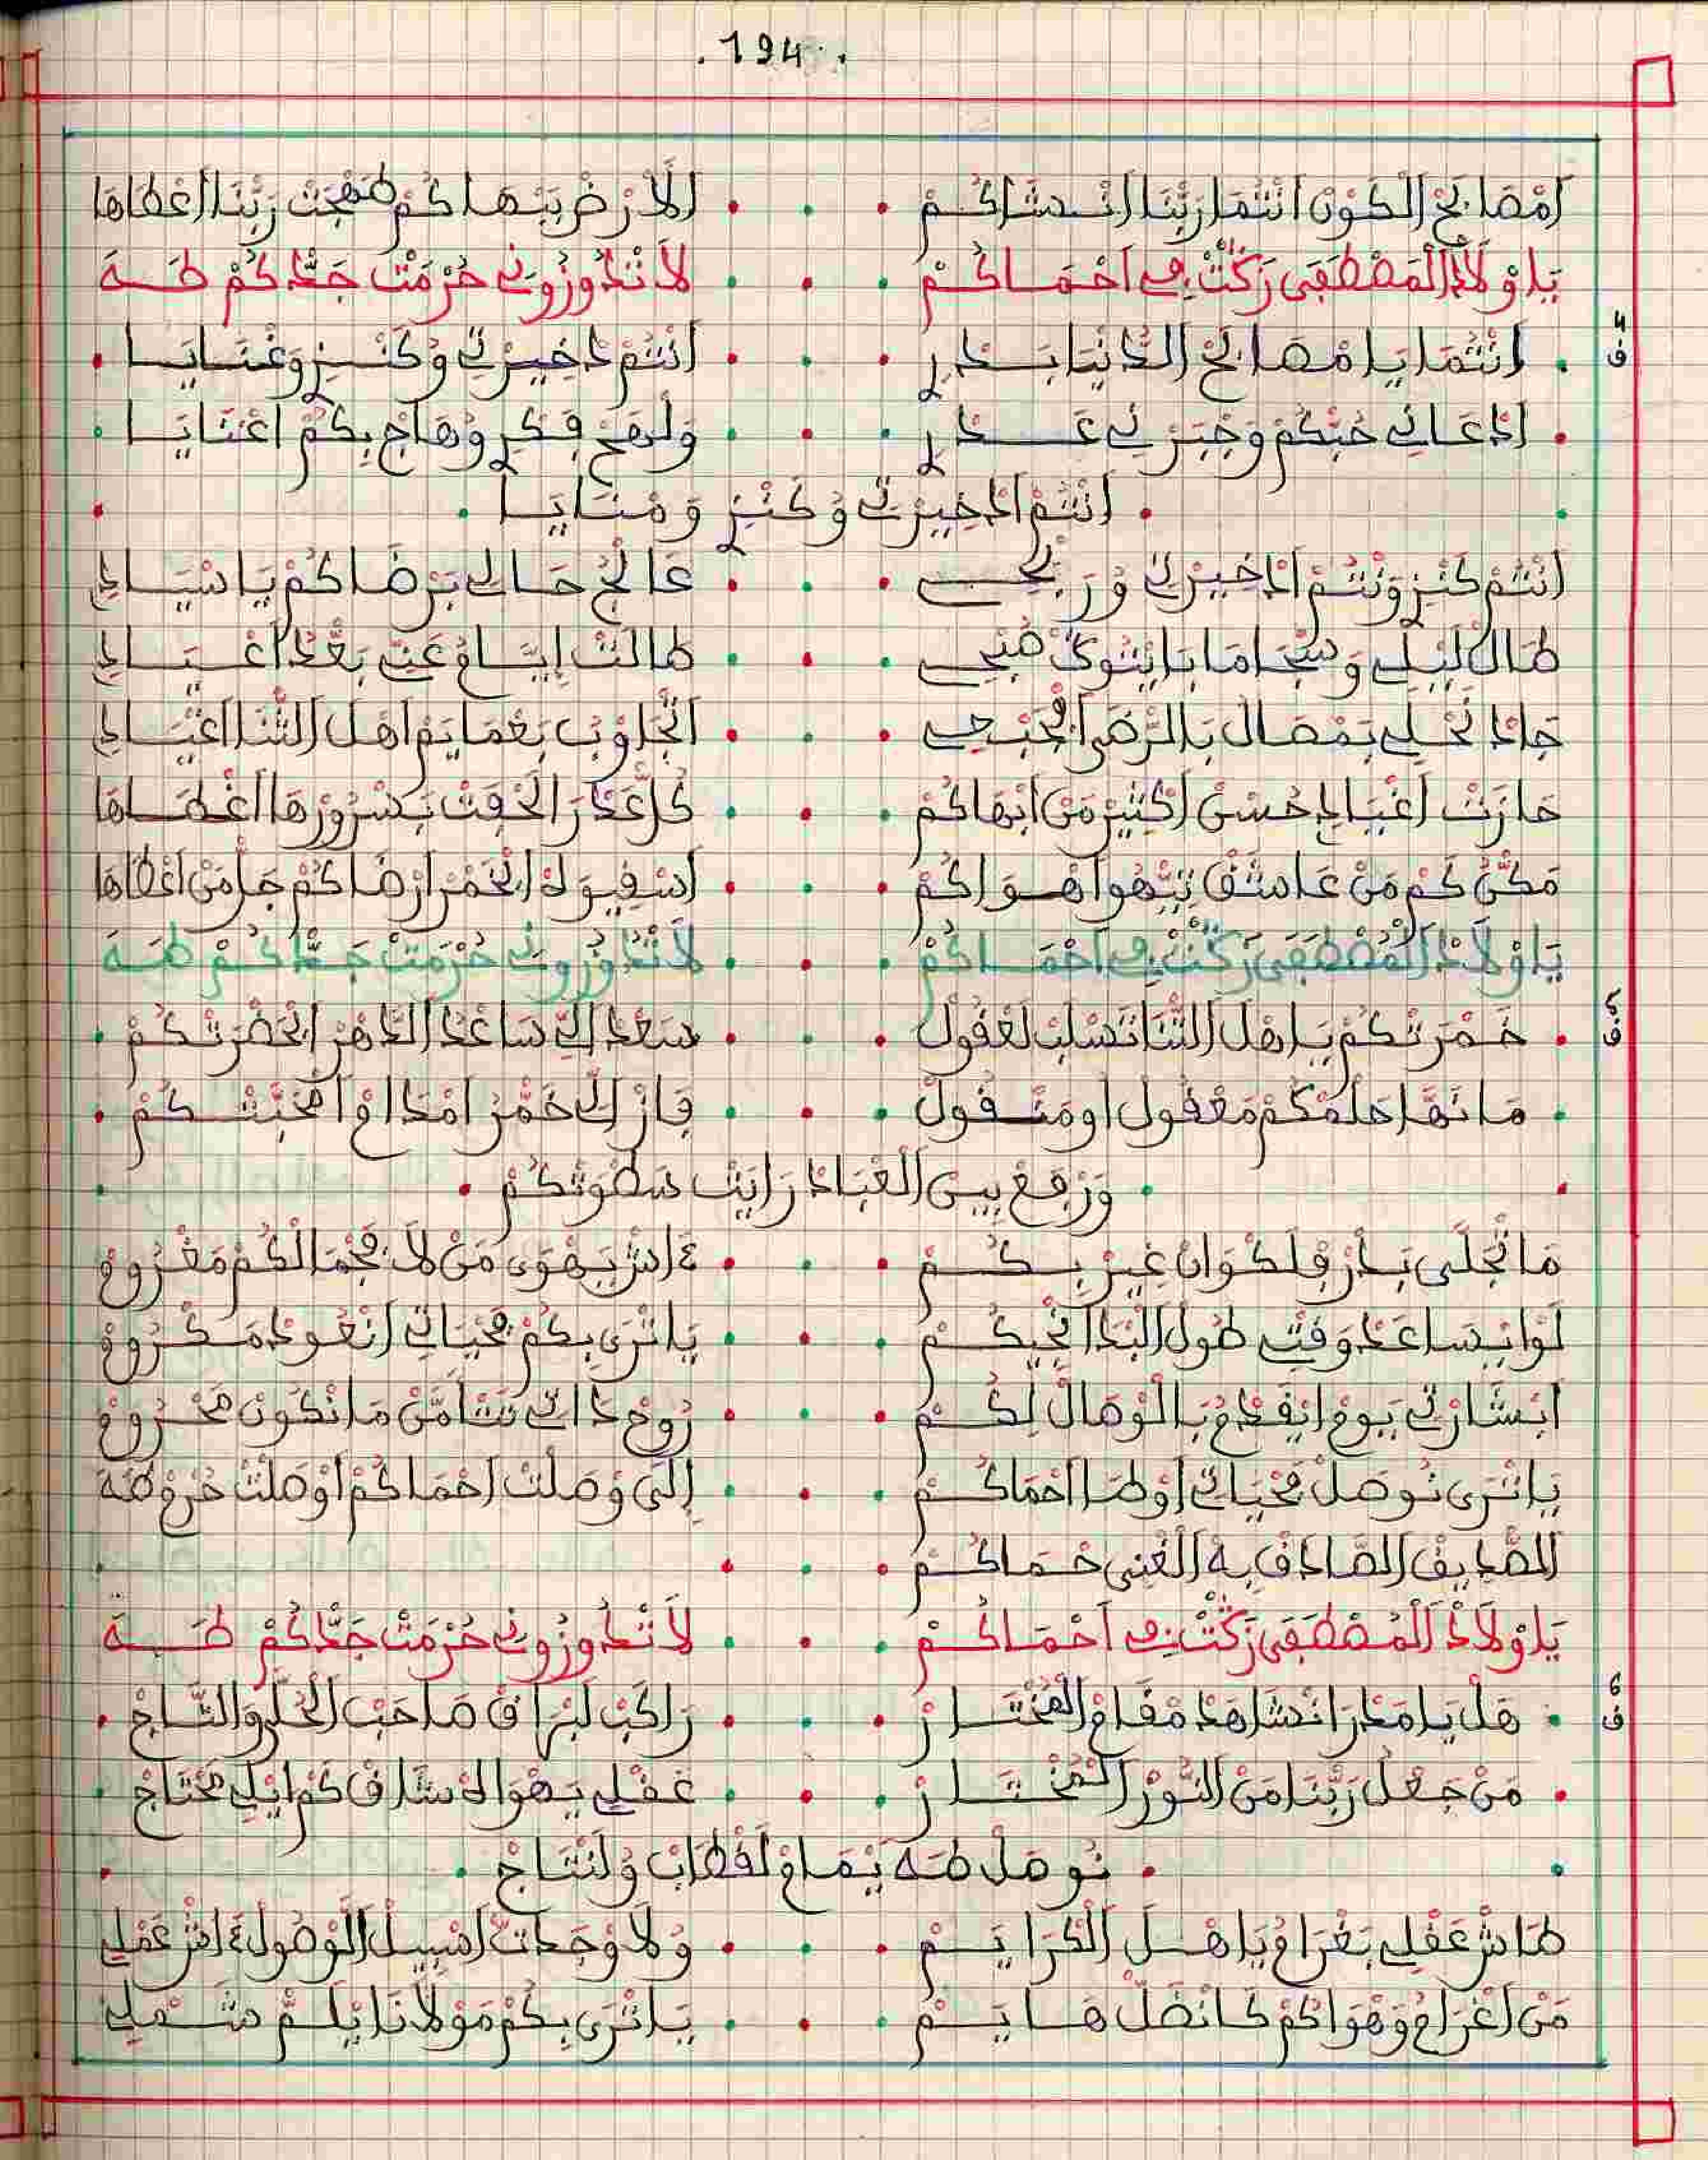 .194.
اَمْصَابَحْ اَلْكَوْنْ اَنْتُمَا رَبْنَا اَنْشَاكُمْ . . . اَلاَرْضْ بَبْهَاكُمْ طَهْجَتْ رَبْنَا اَعْطَاهَا
يَا وْلاَدْ اَلْمَصْطَفَى زَكْتْ فِي اَحْمَاكُمْ . . . لاَ تْدُوزُونِي حُرْمَتْ جَدّْكُمْ طَهَ
ف4 . اَنْتُمَا يَا مْصَابَحْ اَلدُّنْيَا بَدْرِ . . . اَنْتُمْ دْخِيرْتِي وُكَنْزِ وَغْنَايَا .
. اَدْعَانِي حُبْكُمْ وَخْبَرْ لِي عَدْرِ . . . وَلْهَجْ فِكْرِ وُهَاجْ بِكُمْ اَعْنَايَا .
. اَنْتُمْ اَدْخِيرْتِي وُكَنْزِ وَمْنَايَا .
اَنْتُمْ كَنْزِ وَنْتُمْ اَدْخِيرْتِي وُرَبْحِي . . . عَالَجْ حَالِي بَرْضَاكُمْ يَا سْيَادِي
طَالْ لَيْلِي وَسْجَامَا بَايْتْوَكْ صُبْحِي . . . طَالَتْ اِيَّامُ عَنِّي بَعْدْ اَعْيَادِي
جَادَا نَحْلِي بَمْصَالْ بَالرّْضَى اَلْحَبْحِي . . . اَنْجَاوْبْ بَعْمَايَمْ اَهْلْ اَلثّْنَا اَعْيَادِي
حَازَتْ اَعْيَادِ حُسْنْ اَكْثِيرْ مَنْ اَبْهَاكُمْ . . . كُلّْ عَدْرَ اَلْحَقَتْ بَسْرُورْهَا اَعْطَاهَا
مَكّْنْ كُمْ مَنْ عَاشَقْ تِيّْهُ اَهْوَاكُمْ . . . اَسْقِيوَهْ اَلْخَمْرْ اَرْضَاكُمْ جَلّْ مَنْ اَعْطَاهَا
يَا وْلاَدْ اَلْمُصْطَفَى زَكْتْ فِي اَحْمَاكُمْ . . . لاَ تْدُوزُونِي حُرْمَتْ جَدّْكُمْ طَهَ
ف5 . خَمْرَتْكُمْ يَا هْلْ اَلثّْنَا تَسْلَبْ لَعْقُولْ . . . سَعْدْ اَلِّي سَاعْدْ اَلدّْهْرْ اَلْحَضْرَتْكُمْ .
. مَا نَهَّا حَلْمْكُمْ مَعْقُولْ اَو مَنْقُولْ . . . فَازْ اَلِّي خَمّْرْ اَمْدَامْ اَمْحَبّْتْكُمْ .
. وَرْفَعْ بِينْ اَلْعْبَادْ رَايَتْ سَطْوَتْكُمْ .
مَا نْجَلَّى بَدْرْ فِلَكْوَانْ غِيرْ بِكُمْ . . . ءَاشْ يَهْوَى مَنْ لاَ فِجْمَالْكُمْ مَغْرُومْ
لَوْ اَيْسَاعَدْ وَقْتِي طُولْ اَلْبْدَا اَنْجِيكُمْ . . . يَا تْرَى بِكُمْ فِحْيَاتِي اَنْعُودْ مَكْرُومْ
اَبْشَارْتِي يَومْ اَيْقَدْمُ بَالْوْصَالْ لِكُمْ . . . رُوحْ دَاتِي تَتَّامَّنْ مَا نْكُونْ مَحْرُومْ
يَا تْرَى نُوصَلْ فِحْيَاتِي اَوْطَا اَحْمَاكُمْ . . . اِلَى وْصَلْتْ اَحْمَاكُمْ اَوْصَلْتْ حْرَمْ طَهَ
اَلصّْدِيقْ اَلصَّادَقْ بِهْ اَلْغْنِي حْمَاكُمْ . . .
يَا وْلاَدْ اَلْمُصْطَفَى زَكْتْ فِي اَحْمَاكُمْ . . . لاَ تْدُوزُونِي حُرْمَتْ جَدّْكُمْ طَهَ
ف6 . هَلْ يَا مَدْرَا نْشَاهَدْ مْقَامْ اَلْمُخْتَارْ . . . رَاكَبْ لَبْرَاقْ صَاحَبْ اَلْحُلَّ وَالتَّاجْ .
. مَنْ جَعْلْ رَبْنَا مَنْ اَلنُّورْ اَلْمُخْتَارْ . . . عَقْلِي يَهْوَاهْ شَلاَّ قْ كُمْ اِيْلِي مَحْتَاجْ .
. نُوصَلْ طَهَ يْمَامْ لَقْطَابْ وُلَنْتَاجْ .
طَاشْ عَقْلِي بَغْرَامُ يَا هْلَ اَلْكْرَايَمْ . . . وُلاَ وْجَدْتْ اَسْبِيلْ اَلْوْصُولْ ءَاشْ عَمْلِي
مَنْ اَغْرَامُ وَهْوَاكُمْ كَانْضَلّْ هَايَمْ . . . يَا تْرَى بِكُمْ مَوْلاَنَا يْلَمّْ شَمْلِي